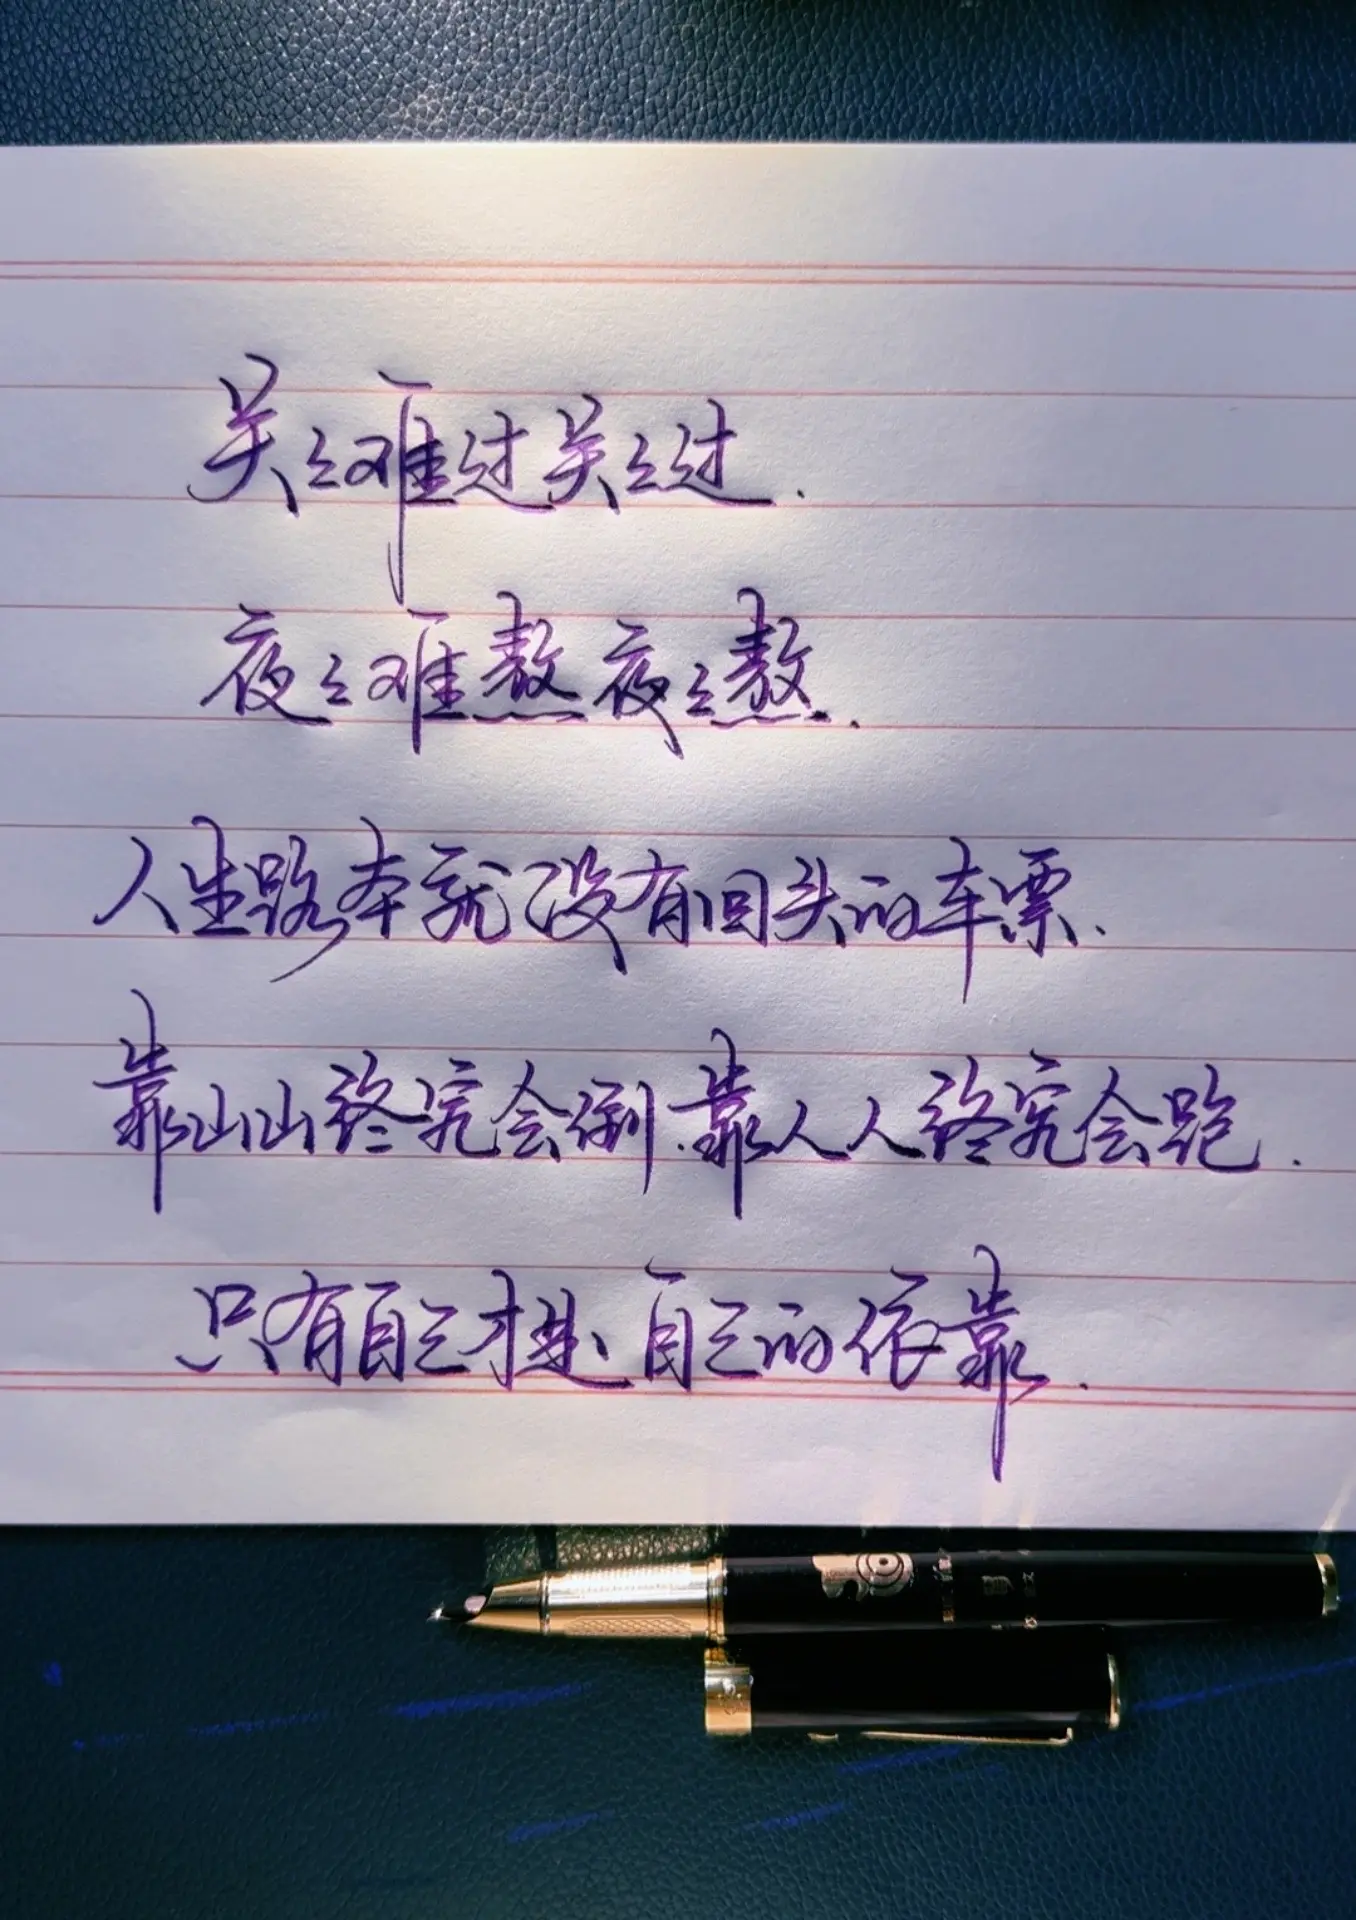 关关难过关关过.
夜夜难熬夜夜熬.
人生路本就没有回头的车票.
靠山山终究会倒.靠人人终究会跑.
只有自己才是自己的依靠.